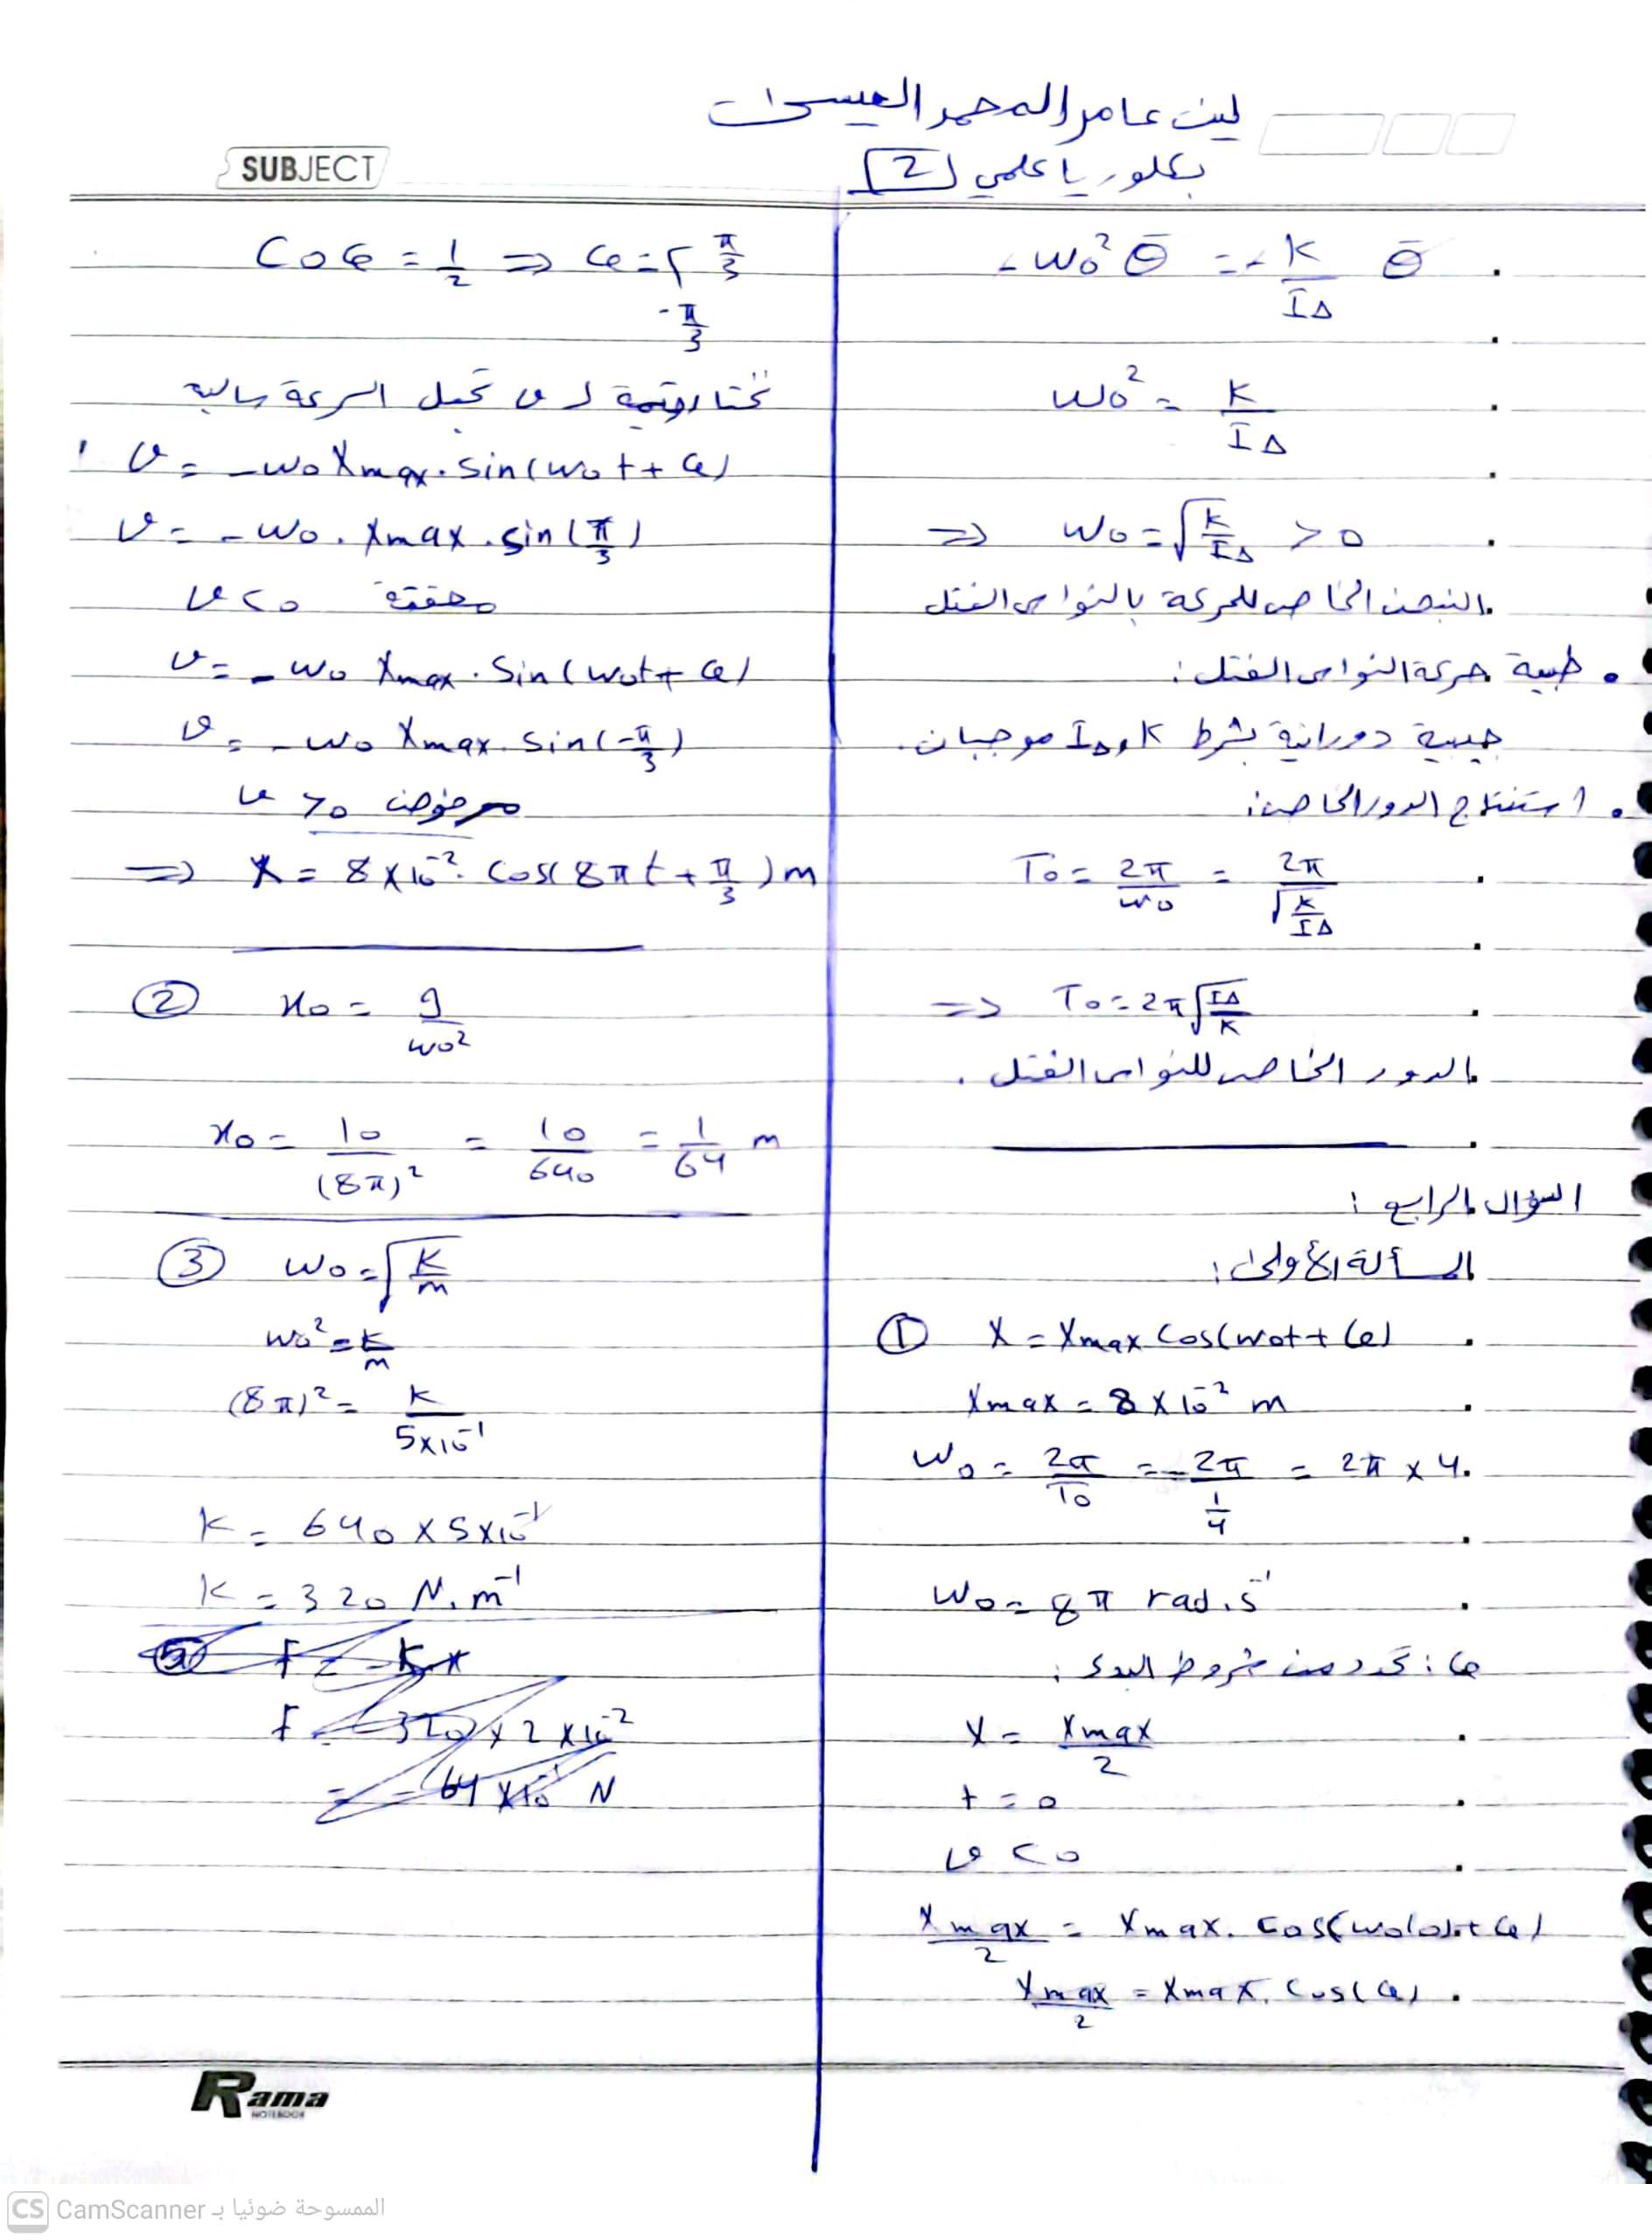 ليث عامر المحمد العيسى
بكلوريا علمي [2]
SUBJECT
-ω₀² θ̄ = -K/I∆ θ̄
ω₀² = K/I∆
=> ω₀ = √(K/I∆) > 0
النبض الخاص للحركة بالنواس الفتل
• طبيعة حركة النواس الفتل:
جيبية دورانية بشرط K و I∆ موجبان.
• استنتاج الدور الخاص:
T₀ = 2π/ω₀ = 2π/√(K/I∆)
=> T₀ = 2π√(I∆/K)
الدور الخاص للنواس الفتل.
السؤال الرابع:
المسألة الأولى:
① X = Xmax cos(ω₀t + φ)
Xmax = 8 × 10⁻² m
ω₀ = 2π/T₀ = 2π/(1/4) = 2π × 4
ω₀ = 8π rad.s⁻¹
φ: نحدد من شروط البدء:
X = Xmax/2
t = 0
v < 0
Xmax/2 = Xmax. cos(ω₀(0)+φ)
Xmax/2 = Xmax. cos(φ)
Cos φ = 1/2 => φ = { π/3
-π/3
نختار قيمة لـ φ تجعل السرعة سالبة
v = -ω₀ Xmax. sin(ω₀t + φ)
v = -ω₀. Xmax. sin(π/3)
v < 0 محققة
v = -ω₀ Xmax. Sin(ω₀t + φ)
v = -ω₀ Xmax. sin(-π/3)
v > 0 مرفوض
=> X = 8 × 10⁻². cos(8πt + π/3) m
② x₀ = g/ω₀²
x₀ = 10/(8π)² = 10/640 = 1/64 m
③ ω₀ = √(K/m)
ω₀² = K/m
(8π)² = K/(5×10⁻¹)
K = 640 × 5×10⁻¹
K = 320 N.m⁻¹
F = -Kx
F = -320 × 2 × 10⁻²
= -64 × 10⁻¹ N
Rama
NOTEBOOK
CS CamScanner الممسوحة ضوئيا بـ